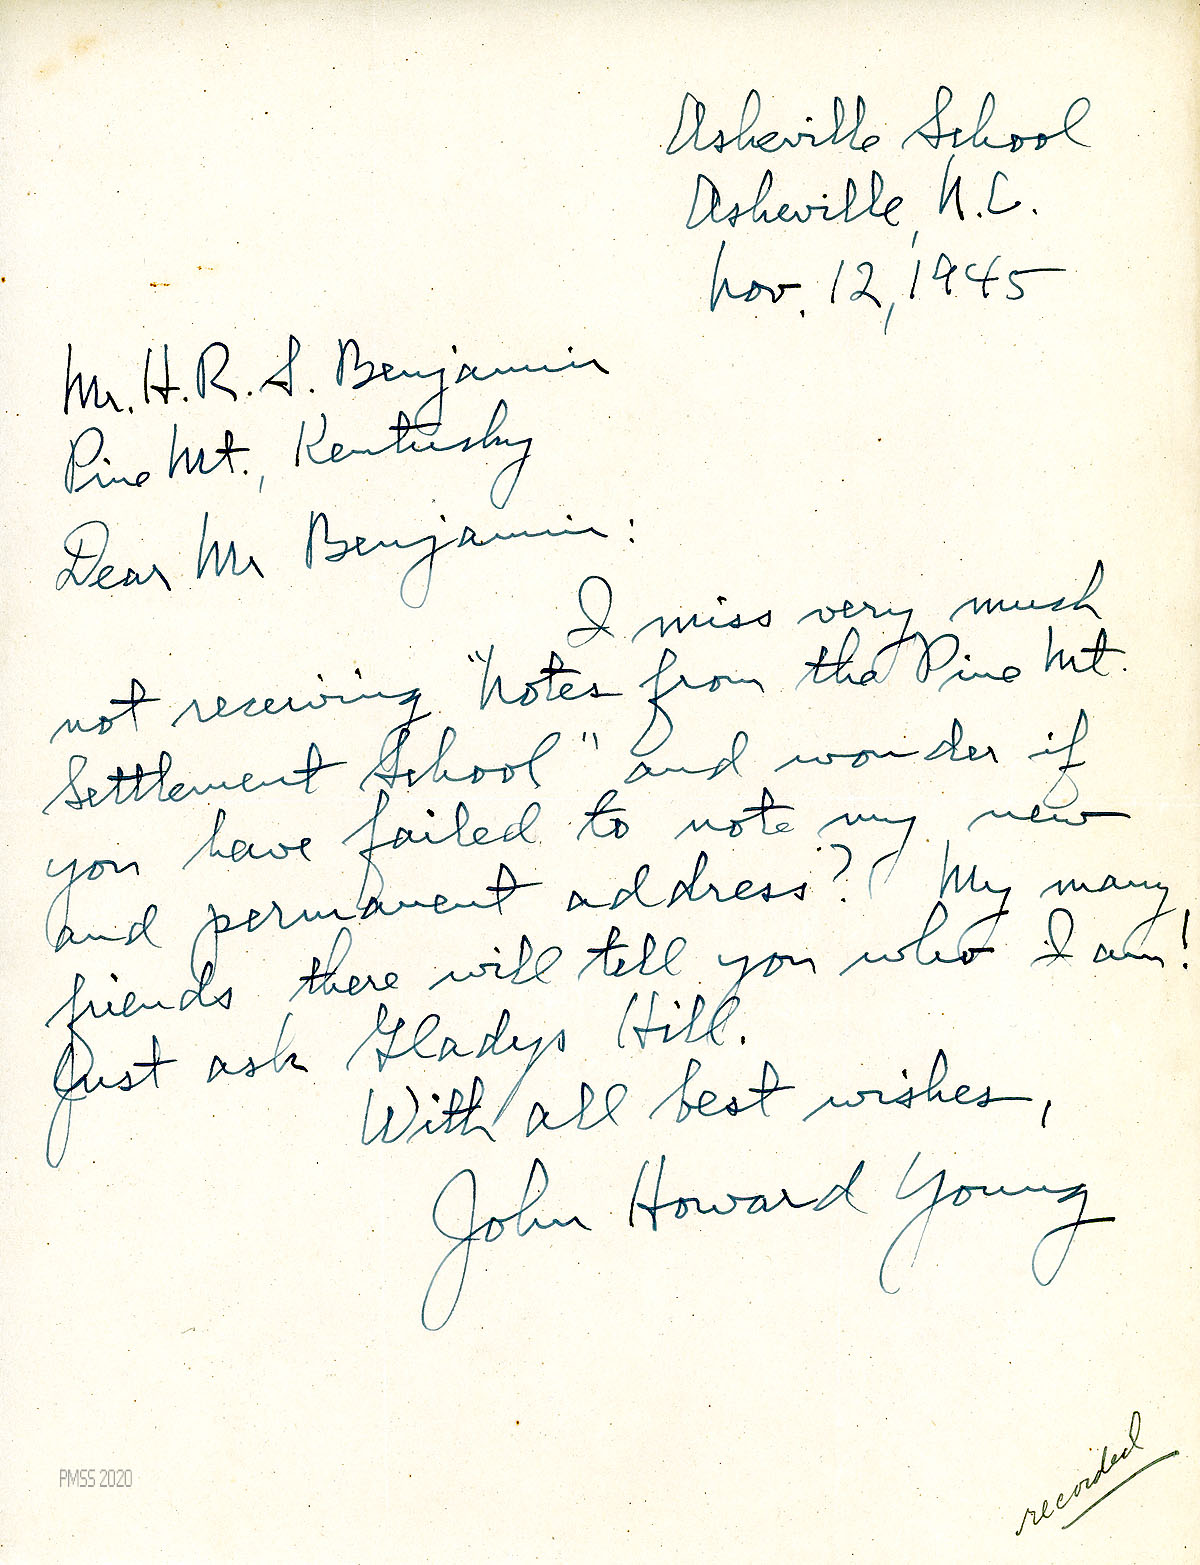 Asheville School
Asheville, N.C.
Nov. 12, 1945
Mr. H. R. S. Benjamin
Pine Mt., Kentucky
Dear Mr Benjamin:
I miss very much
not receiving "Notes from the Pine Mt.
Settlement School" and wonder if
you have failed to note my new
and permanent address? My many
friends there will tell you who I am!
Just ask Gladys Hill.
With all best wishes,
John Howard Young
PMSS 2020
recorded